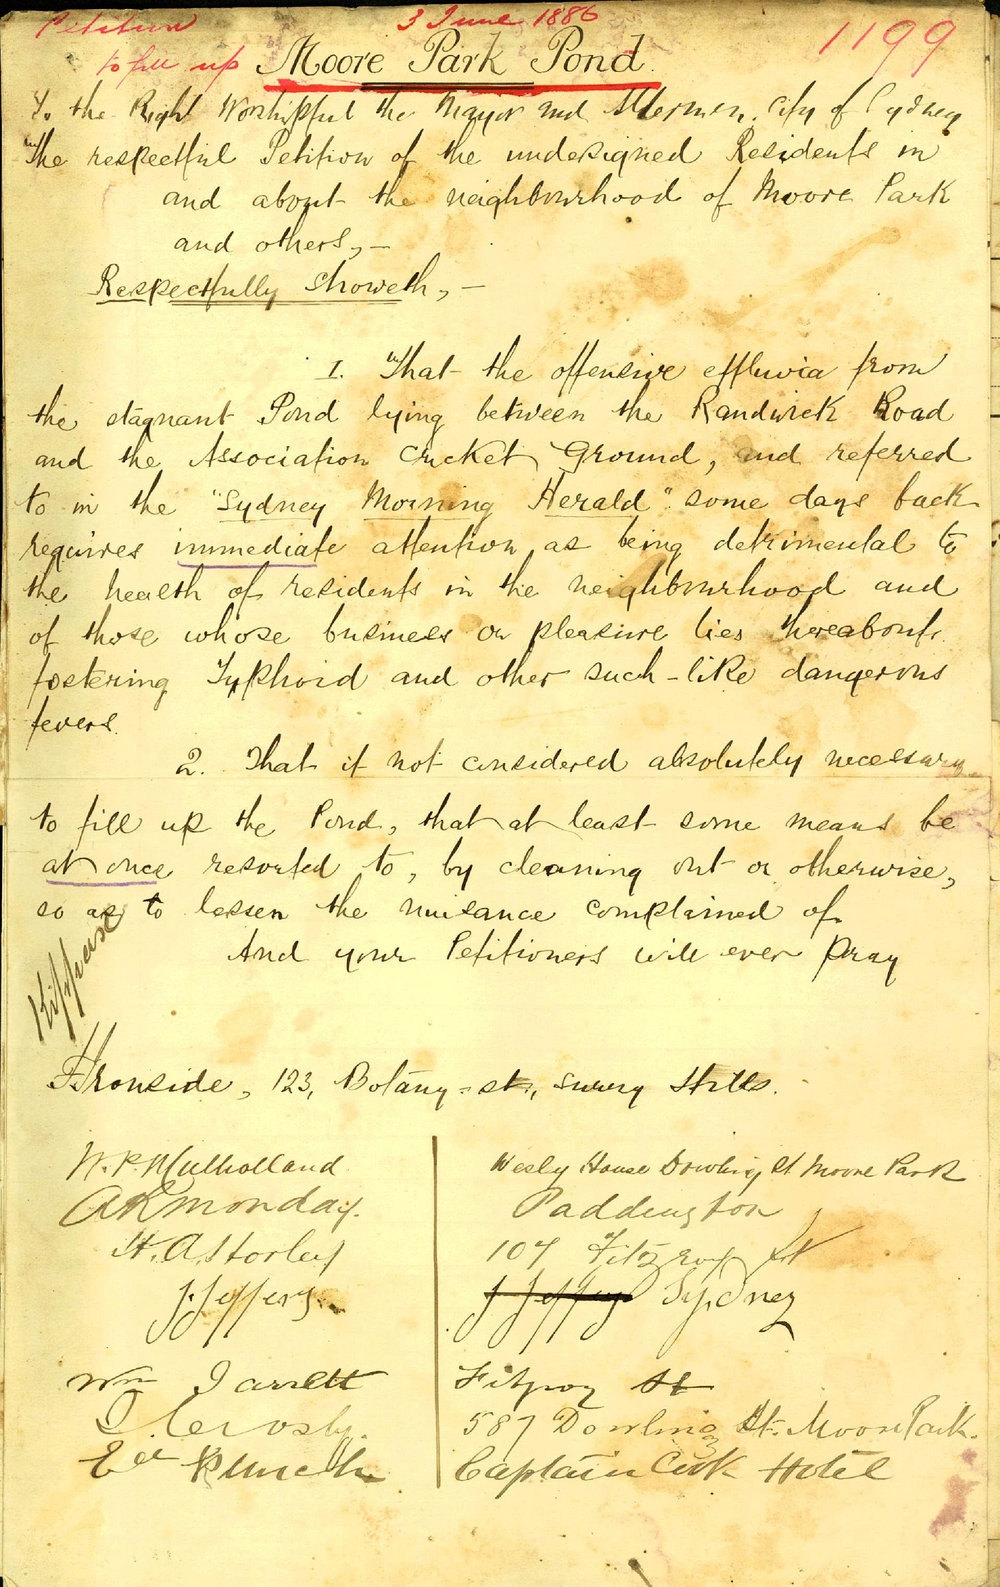 Petition
3 June 1886
1199
to fill up
Moore Park Pond.
To the Right Worshipful the Mayor and Aldermen, City of Sydney
The respectful Petition of the undesigned Residents in
and about the neighbourhood of Moore Park
and others, —
Respectfully Showeth, —
1. That the offensive effluvia from
the stagnant Pond lying between the Randwick Road
and the Association Cricket Ground, and referred
to in the "Sydney Morning Herald" some days back
requires immediate attention as being detrimental to
the health of residents in the neighbourhood and
of those whose business or pleasure lies thereabouts.
fostering Typhoid and other such-like dangerous
fevers.
2. That if not considered absolutely necessary
to fill up the Pond, that at least some means be
at once resorted to, by cleaning out or otherwise,
so as to lessen the nuisance complained of.
And your Petitioners will ever Pray
Kippax
Ironside, 123, Botany-st., Surry Hills.
W. P. Mulholland Wesly House Dowling St Moore Park
A R Monday. Paddington
H. A. Storley 107 Fitzroy St
J. Jeffery. J Jeffery Sydney
Wm Jarrett Fitzroy St
Crosby. 587 Dowling St. Moore Park.
Ed Punch Captain Cook Hotel